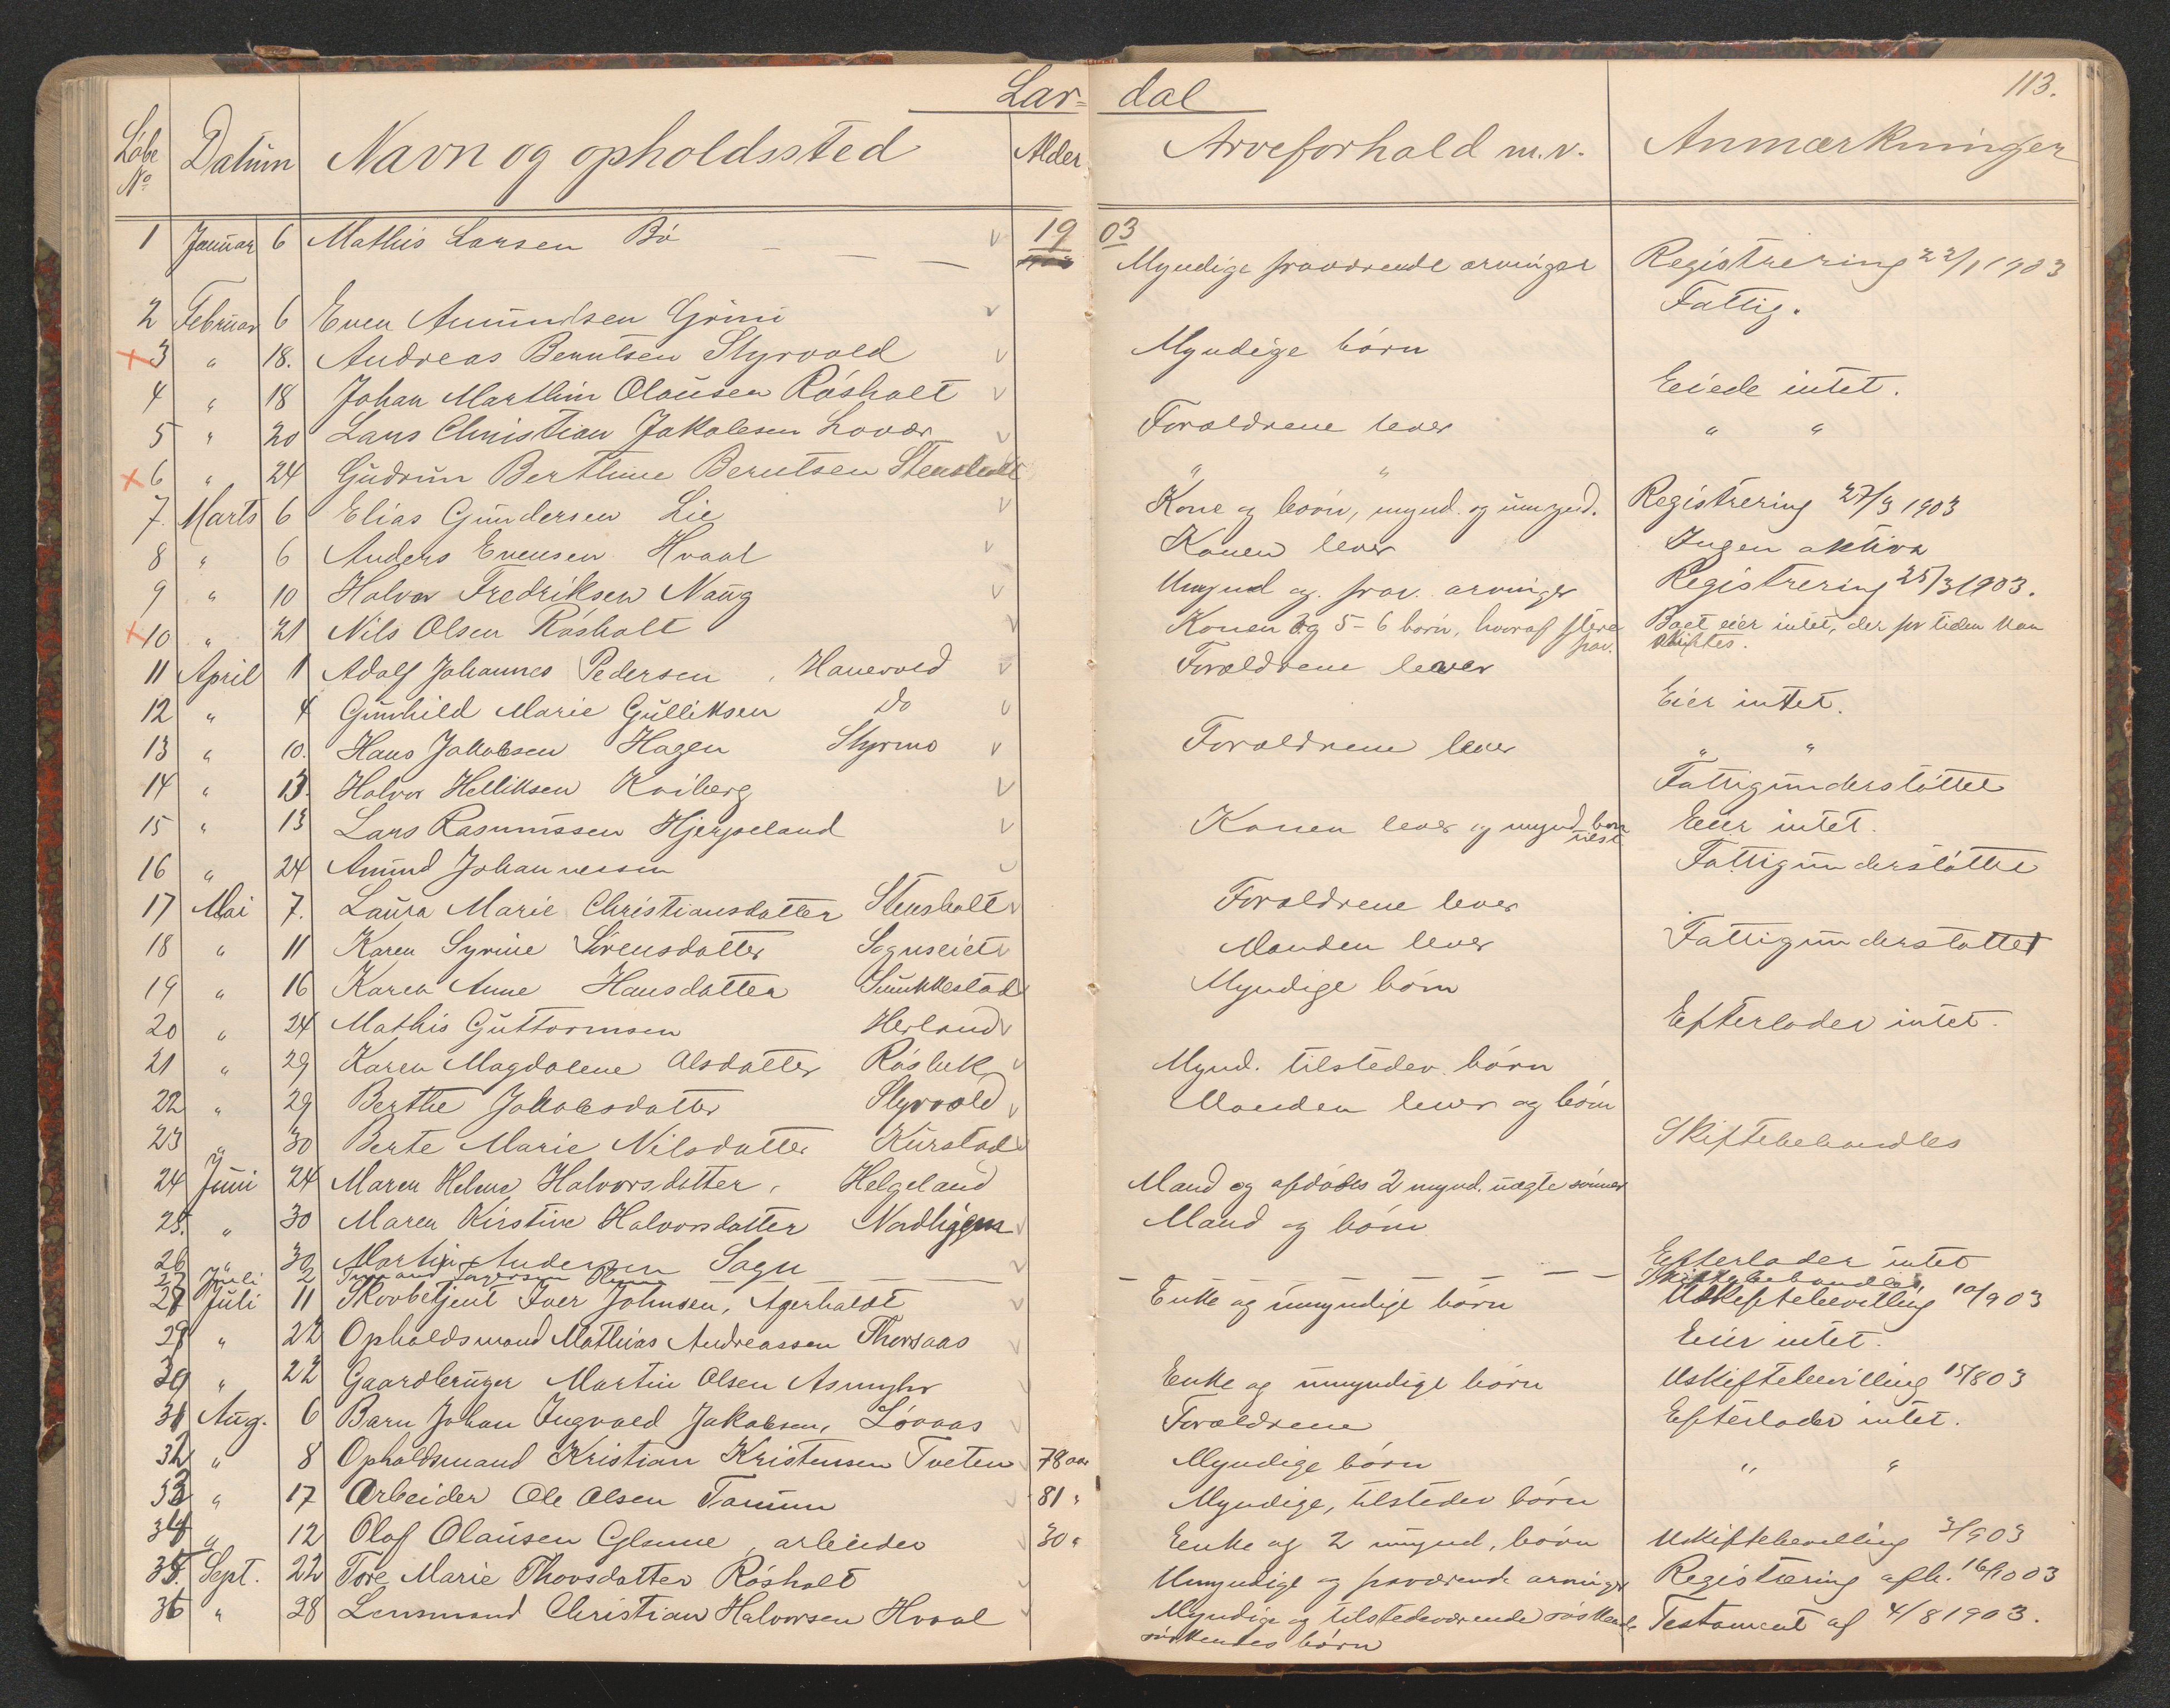 Lar= dal
113.
Löbe No Datum Navn og opholdssted Alder. Arveforhold m.v. Anmærkninger
1903
1 Januar 6 Mathis Larsen Bö Myndige fraværende arvinger Registrering 22/1 1903
2 Februar 6 Even Amundsen Grini Fattig.
3 " 18. Andreas Berntsen Styrvold Myndige börn
4 " 18 Johan Marthin Olausen Rösholt Eiede intet.
5 " 20 Lars Christian Jakobsen Forældrene lever " "
6 " 24 Gudrun Berthine Berntsen Stensholt " "
7. Marts 6 Elias Gundersen Lie Kone og börn, mynd. og umynd. Registrering 27/3 1903
8 " 6 Anders Evensen Hvaal Konen lever Ingen aktiva
9 " 10 Halvor Fredriksen Naug Umynd og frav. arvinger Registrering 25/3 1903.
10 " 21 Nils Olsen Rösholt Konen og 5-6 börn, hvoraf flere frav. Boet eier intet, der for tiden kan skiftes.
11 April 1 Adolf Johannes Pedersen, Hanevold Forældrene lever
12 " 4 Gunhild Marie Gulliksen Do Eier intet.
13 " 10. Hans Jakobsen Hagen Styrmo Forældrene lever " "
14 " 13. Halvor Helliksen Fattigunderstöttet
15 " 13 Lars Rasmussen Hjerpeland Konen lever og mynd. börn tilst. Eier intet.
16 " 24 Amund Johannessen Fattigunderstöttet
17 Mai 7. Laura Marie Christiansdatter Stensholt Forældrene lever
18 " 11 Karen Syrine Sörensdatter Sognseiet Manden lever Fattigunderstöttet
19 " 16 Karen Anne Hansdatter Myndige börn
20 " 24 Mathis Guttormsen Herland Efterlader intet.
21 " 29 Karen Magdalene Olsdatter Mynd. tilstedev. börn
22 " 29 Berthe Jakobsdatter Styrvold Manden lever og börn
23 " 30 Berte Marie Nilsdatter Skiftebehandles
24 Juni 24 Maren Helene Halvorsdatter, Helgeland Mand og afdödes 2 mynd. uægte sönner
25. " 30 Maren Kirstine Halvorsdatter Mand og börn
26 " 30 Martin Andersen Sogn Efterlader intet
27 Juli 2 Skiftebehandles
28 Juli 11 Skovbetjent Iver Johnsen, Agerholdt Enke og umyndige börn Uskiftebevilling 10/9 03
29 " 22 Opholdsmand Mathias Andreassen Thorsaas Eier intet.
30 " 22 Gaardbruger Martin Olsen Asmyhr Enke og umyndige börn Uskiftebevilling 15/8 03
31 Aug. 6 Barn Johan Ingvald Jakobsen, Lövaas Forældrene Efterlader intet.
32 " 8 Opholdsmand Kristian Kristensen Tveten 78 aar Myndige börn " "
33 " 17 Arbeider Ole Olsen Tanum 81 " Myndige, tilstedev börn
34 " 12 Olaf Olausen Glenne, arbeider 30 " Enke og 2 umynd. börn Uskiftebevilling 3/9 03
35. Sept. 22 Tore Marie Thorsdatter Rösholt Umyndige og fraværende arvinger Registrering afh. 16/10 03
36 " 28 Lensmand Christian Halvorsen Hvaal Myndige og tilstedeværende söskende, söskendes börn Testament af 4/8 1903.